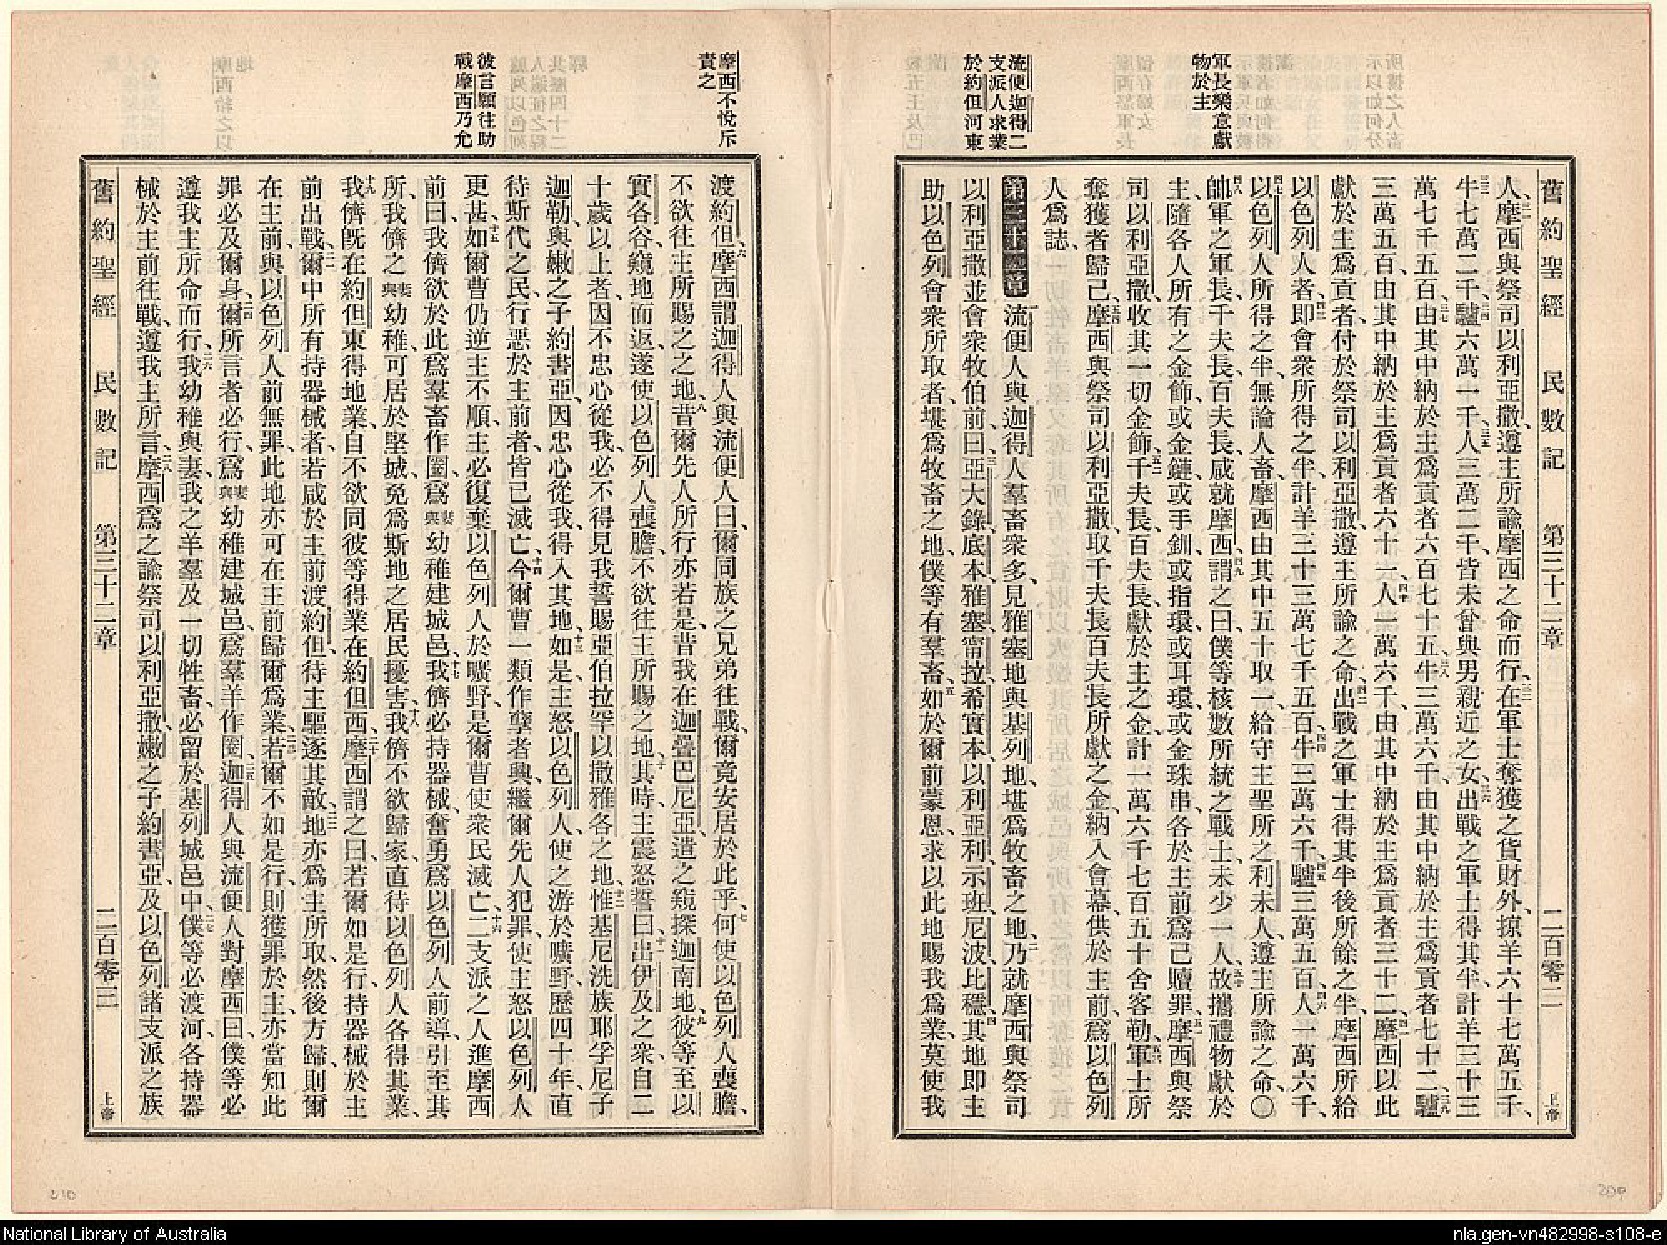 軍長樂意獻
物於主
流便迦得二
支派人求業
於約但河東
舊約聖經　民數記　第三十二章　二百零二　上帝
人、摩西與祭司以利亞撒、遵主所諭摩西之命而行、在軍士奪獲之貨財外、掠羊六十七萬五千、
牛七萬二千、驢六萬一千、人三萬二千、皆未曾與男親近之女、出戰之軍士得其半、計羊三十三
萬七千五百、由其中納於主爲貢者六百七十五、牛三萬六千、由其中納於主爲貢者七十二、驢
三萬五百、由其中納於主爲貢者六十一、人一萬六千、由其中納於主爲貢者三十二、摩西以此
獻於主爲貢者、付於祭司以利亞撒、遵主所諭之命、出戰之軍士得其半後、所餘之半、摩西所給
以色列人者、即會衆所得之半、計羊三十三萬七千五百、牛三萬六千、驢三萬五百、人一萬六千、
以色列人所得之半、無論人畜、摩西由其中五十取一、給守主聖所之利未人、遵主所諭之命、〇
帥軍之軍長、千夫長、百夫長、咸就摩西、謂之曰、僕等核數所統之戰士、未少一人、故攜禮物獻於
主、隨各人所有之金飾、或金鏈、或手釧、或指環、或耳環、或金珠串、各於主前爲己贖罪、摩西與祭
司以利亞撒、收其一切金飾、千夫長、百夫長、獻於主之金、計一萬六千七百五十舍客勒、軍士所
奪獲者歸己、摩西與祭司以利亞撒、取千夫長百夫長所獻之金、納入會幕、供於主前、爲以色列
人爲誌、
第三十二章　流便人與迦得人羣畜衆多、見雅塞地與基列地、堪爲牧畜之地、乃就摩西與祭司
以利亞撒、並會衆牧伯前、曰、亞大錄、底本、雅塞、甯拉、希實本、以利亞利、示班、尼波、比穩、其地即主
助以色列會衆所取者、堪爲牧畜之地、僕等有羣畜、如於爾前蒙恩、求以此地賜我爲業、莫使我
摩西不悅斥
責之
彼言願往助
戰摩西乃允
渡約但、摩西謂迦得人與流便人曰、爾同族之兄弟往戰、爾竟安居於此乎、何使以色列人喪膽、
不欲往主所賜之之地、昔爾先人所行亦若是、昔我在迦疊巴尼亞遣之窺探迦南地、彼等至以
實各谷、窺地而返、遂使以色列人喪膽、不欲往主所賜之地、其時主震怒、誓曰、出伊及之衆、自二
十歲以上者、因不忠心從我、必不得見我誓賜亞伯拉罕以撒雅各之地、惟基尼洗族耶孚尼子
迦勒、與嫩之子約書亞、因忠心從我、得入其地、如是主怒以色列人、使之游於曠野、歷四十年、直
待斯代之民行惡於主前者、皆已滅亡、今爾曹一類作孽者興、繼爾先人犯罪、使主怒以色列人
更甚、如爾曹仍逆主不順、主必復棄以色列人於曠野、是爾曹使衆民滅亡、二支派之人進摩西
前曰、我儕欲於此爲羣畜作圈、爲妻與幼稚建城邑、我儕必持器械、奮勇爲以色列人前導、引至其
所、我儕之妻與幼稚可居於堅城、免爲斯地之居民擾害、我儕不欲歸家、直待以色列人各得其業、
我儕旣在約但東得地業、自不欲同彼等得業在約但西、摩西謂之曰、若爾如是行、持器械於主
前出戰、爾中所有持器械者、若咸於主前渡約但、待主驅逐其敵、地亦爲主所取、然後方歸、則爾
在主前、與以色列人前無罪、此地亦可在主前歸爾爲業、若爾不如是行、則獲罪於主、亦當知此
罪必及爾身、爾所言者必行、爲妻與幼稚建城邑、爲羣羊作圈、迦得人與流便人對摩西曰、僕等必
遵我主所命而行、我幼稚與妻、我之羊羣及一切牲畜、必留於基列城邑中、僕等必渡河、各持器
械於主前往戰、遵我主所言、摩西爲之諭祭司以利亞撒、嫩之子約書亞、及以色列諸支派之族
舊約聖經　民數記　第三十二章　二百零三　上帝
210
209
National Library of Australia
nla.gen-vn482998-s108-e